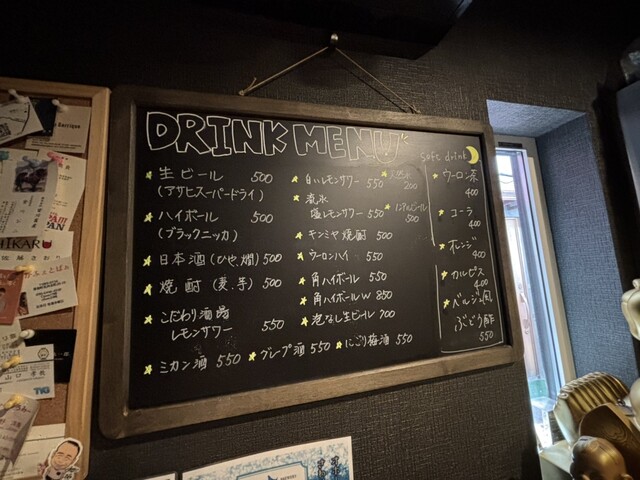 DRINK MENU
生ビール 500
(アサヒスーパードライ)
ハイボール 500
(ブラックニッカ)
日本酒(ひや、燗) 500
焼酎(麦、芋) 500
こだわり酒場
レモンサワー 550
ミカン酒 550
グレープ酒 550
にごり梅酒 550
白いレモンサワー 550
天然水 200
流氷
塩レモンサワー 550
ノンアルビール 500
キンミヤ焼酎 500
ウーロンハイ 550
角ハイボール 550
角ハイボールW 850
泡なし生ビール 700
Soft drink
ウーロン茶
400
コーラ
400
オレンジ
400
カルピス
400
バルジュ風
ぶどう酢
550